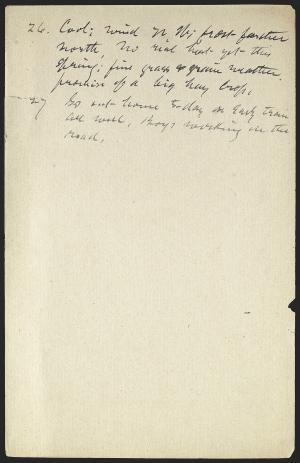 26. Cool; wind N. W; frost farther
north, No real hot yet this
Spring; fine grass & grain weather.
promise of a big hay crop.
— 27 Go out home to-day on Early train
All well, Boys working on the
road.